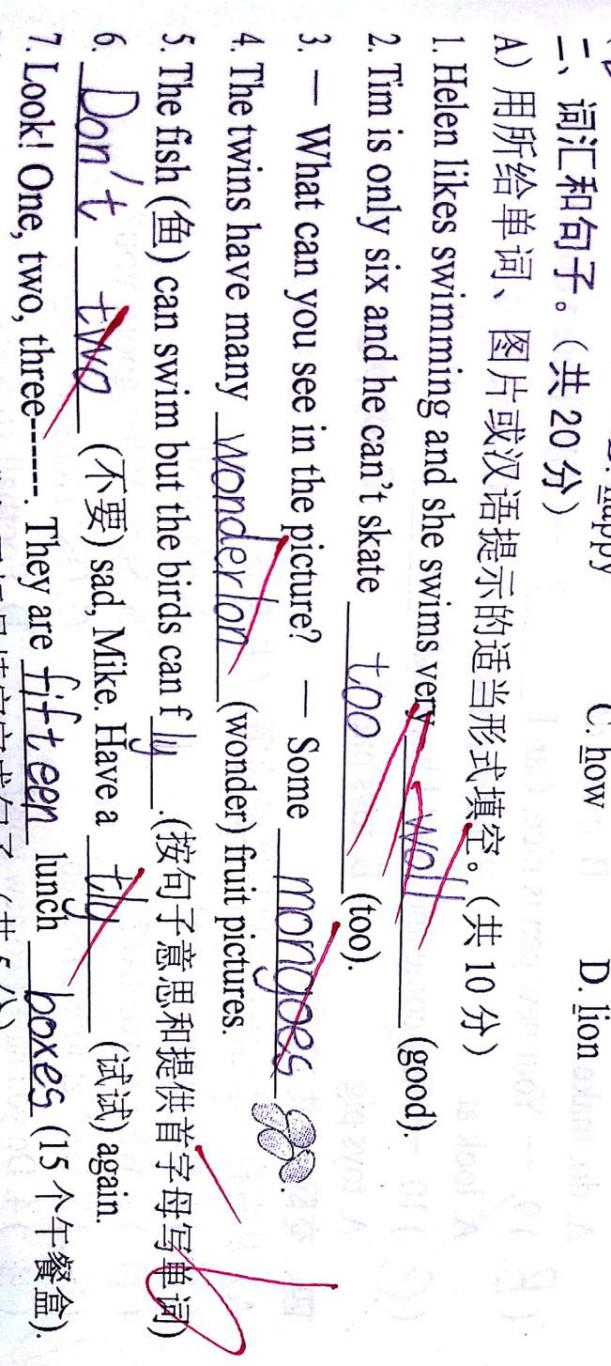 happy C. how D. lion
二、词汇和句子。(共 20 分)
A) 用所给单词、图片或汉语提示的适当形式填空。(共 10 分)
1. Helen likes swimming and she swims very woll (good).
2. Tim is only six and he can't skate too (too).
3. — What can you see in the picture? — Some mongoes .
4. The twins have many wonderlon (wonder) fruit pictures.
5. The fish (鱼) can swim but the birds can f ly .(按句子意思和提供首字母写单词)
6. Don't two (不要) sad, Mike. Have a tly (试试) again.
7. Look! One, two, three------. They are fifteen lunch boxes (15 个午餐盒).